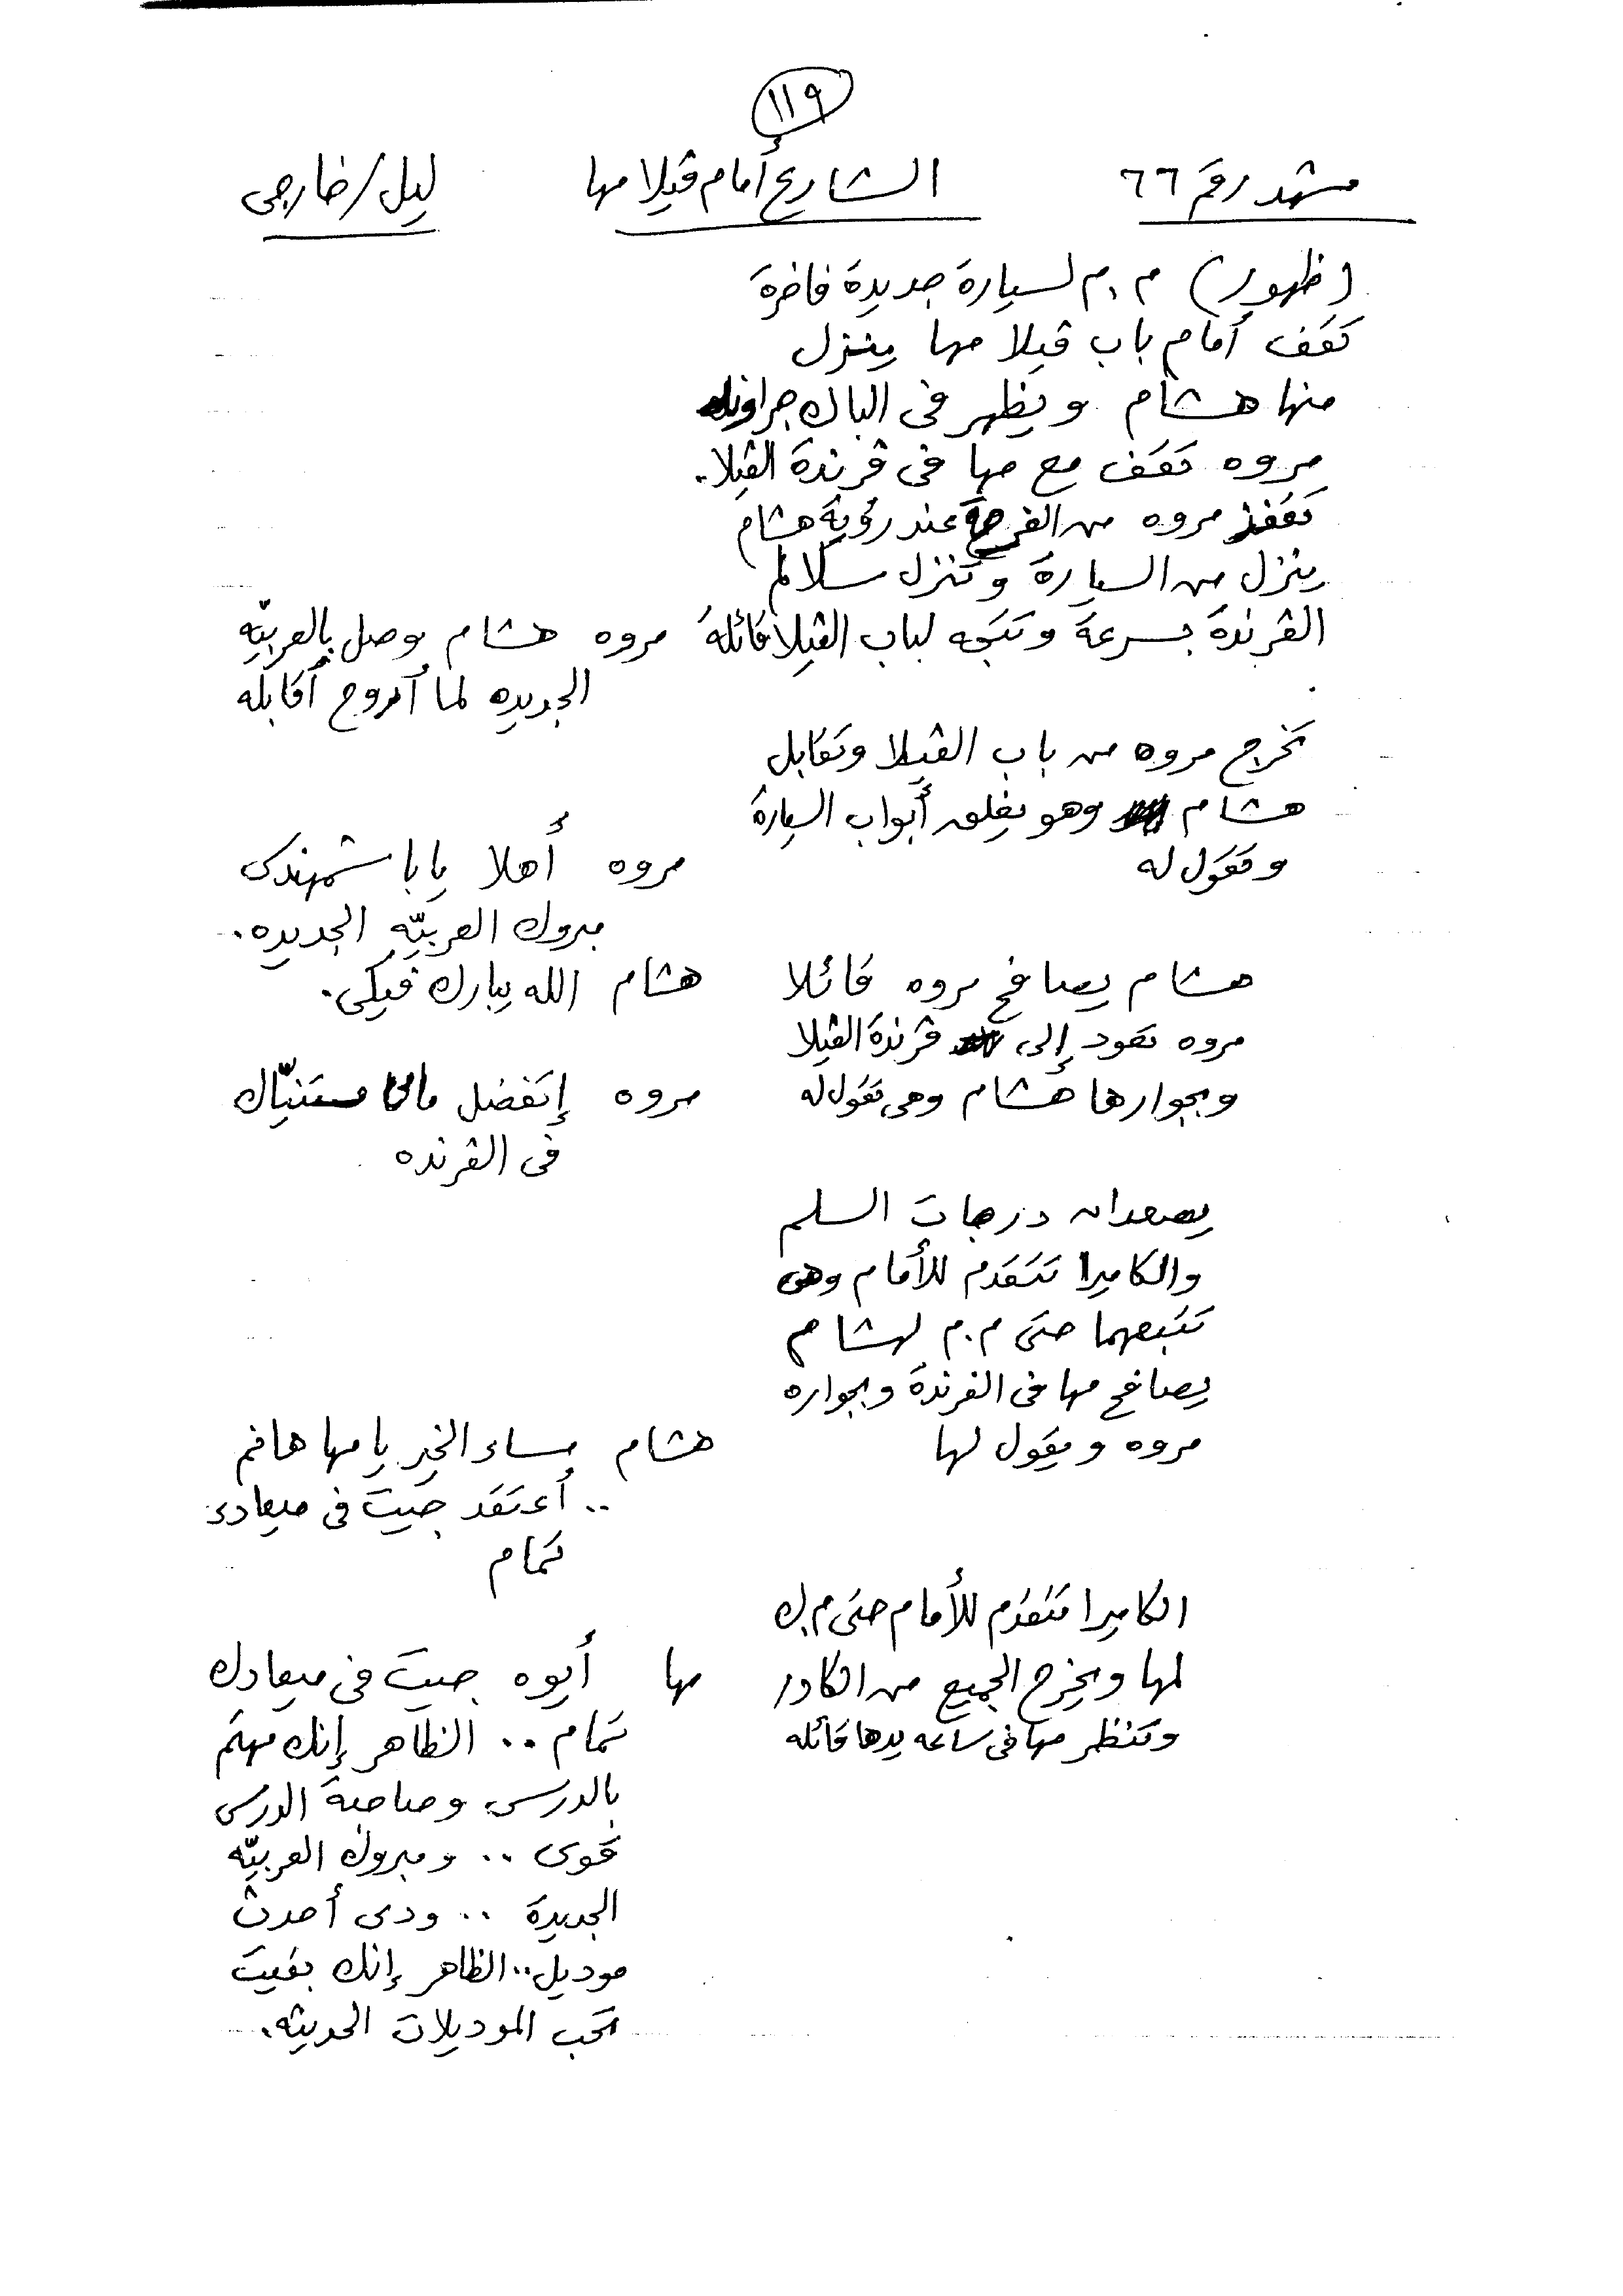 ١١٩
مشهد رقم ٦٦ الشارع أمام ڤيلا مها ليل/خارجى
(ظهور) م.م لسيارة جديدة فاخرة
تقف أمام باب ڤيلا مها ينزل
منها هشام ويظهر فى الباك جراوند
مروه تقف مع مها فى ڤرندة الڤيلا.
تقفز مروه من الفرحة عند رؤية هشام
ينزل من السيارة وتنزل سلالم
الڤرندة بسرعة وتتجه لباب الڤيلا قائلة مروه هشام وصل بالعربيّه
الجديده لما أروح أقابله
تخرج مروه من باب الڤيلا وتقابل
هشام وهو يغلق أبواب السيارة
وتقول له مروه أهلا يا باشمهندس
مبروك العربيّه الجديده.
هشام يصافح مروه قائلا هشام الله يبارك فيكى.
مروه تعود إلى ڤرندة الڤيلا
وبجوارها هشام وهى تقول له مروه إتفضل ماما مستنيّاك
فى الڤرنده
يصعدان درجات السلم
والكاميرا تتقدم للأمام وهى
تتبعهما حتى م.م لهشام
يصافح مها فى الفرندة وبجواره
مروه ويقول لها هشام مساء الخير يا مها هانم
.. أعتقد جيت فى ميعادى
تمام
الكاميرا تتقدم للأمام حتى م.ك
لمها ويخرج الجميع من الكادر مها أيوه جيت فى ميعادك
وتنظر مها فى ساعه يدها قائله تمام .. الظاهر إنك مهتم
بالدرس وصاحبة الدرس
قوى .. ومبروك العربيّه
الجديدة .. ودى أحدث
موديل.. الظاهر إنك بقيت
تحب الموديلات الحديثه.